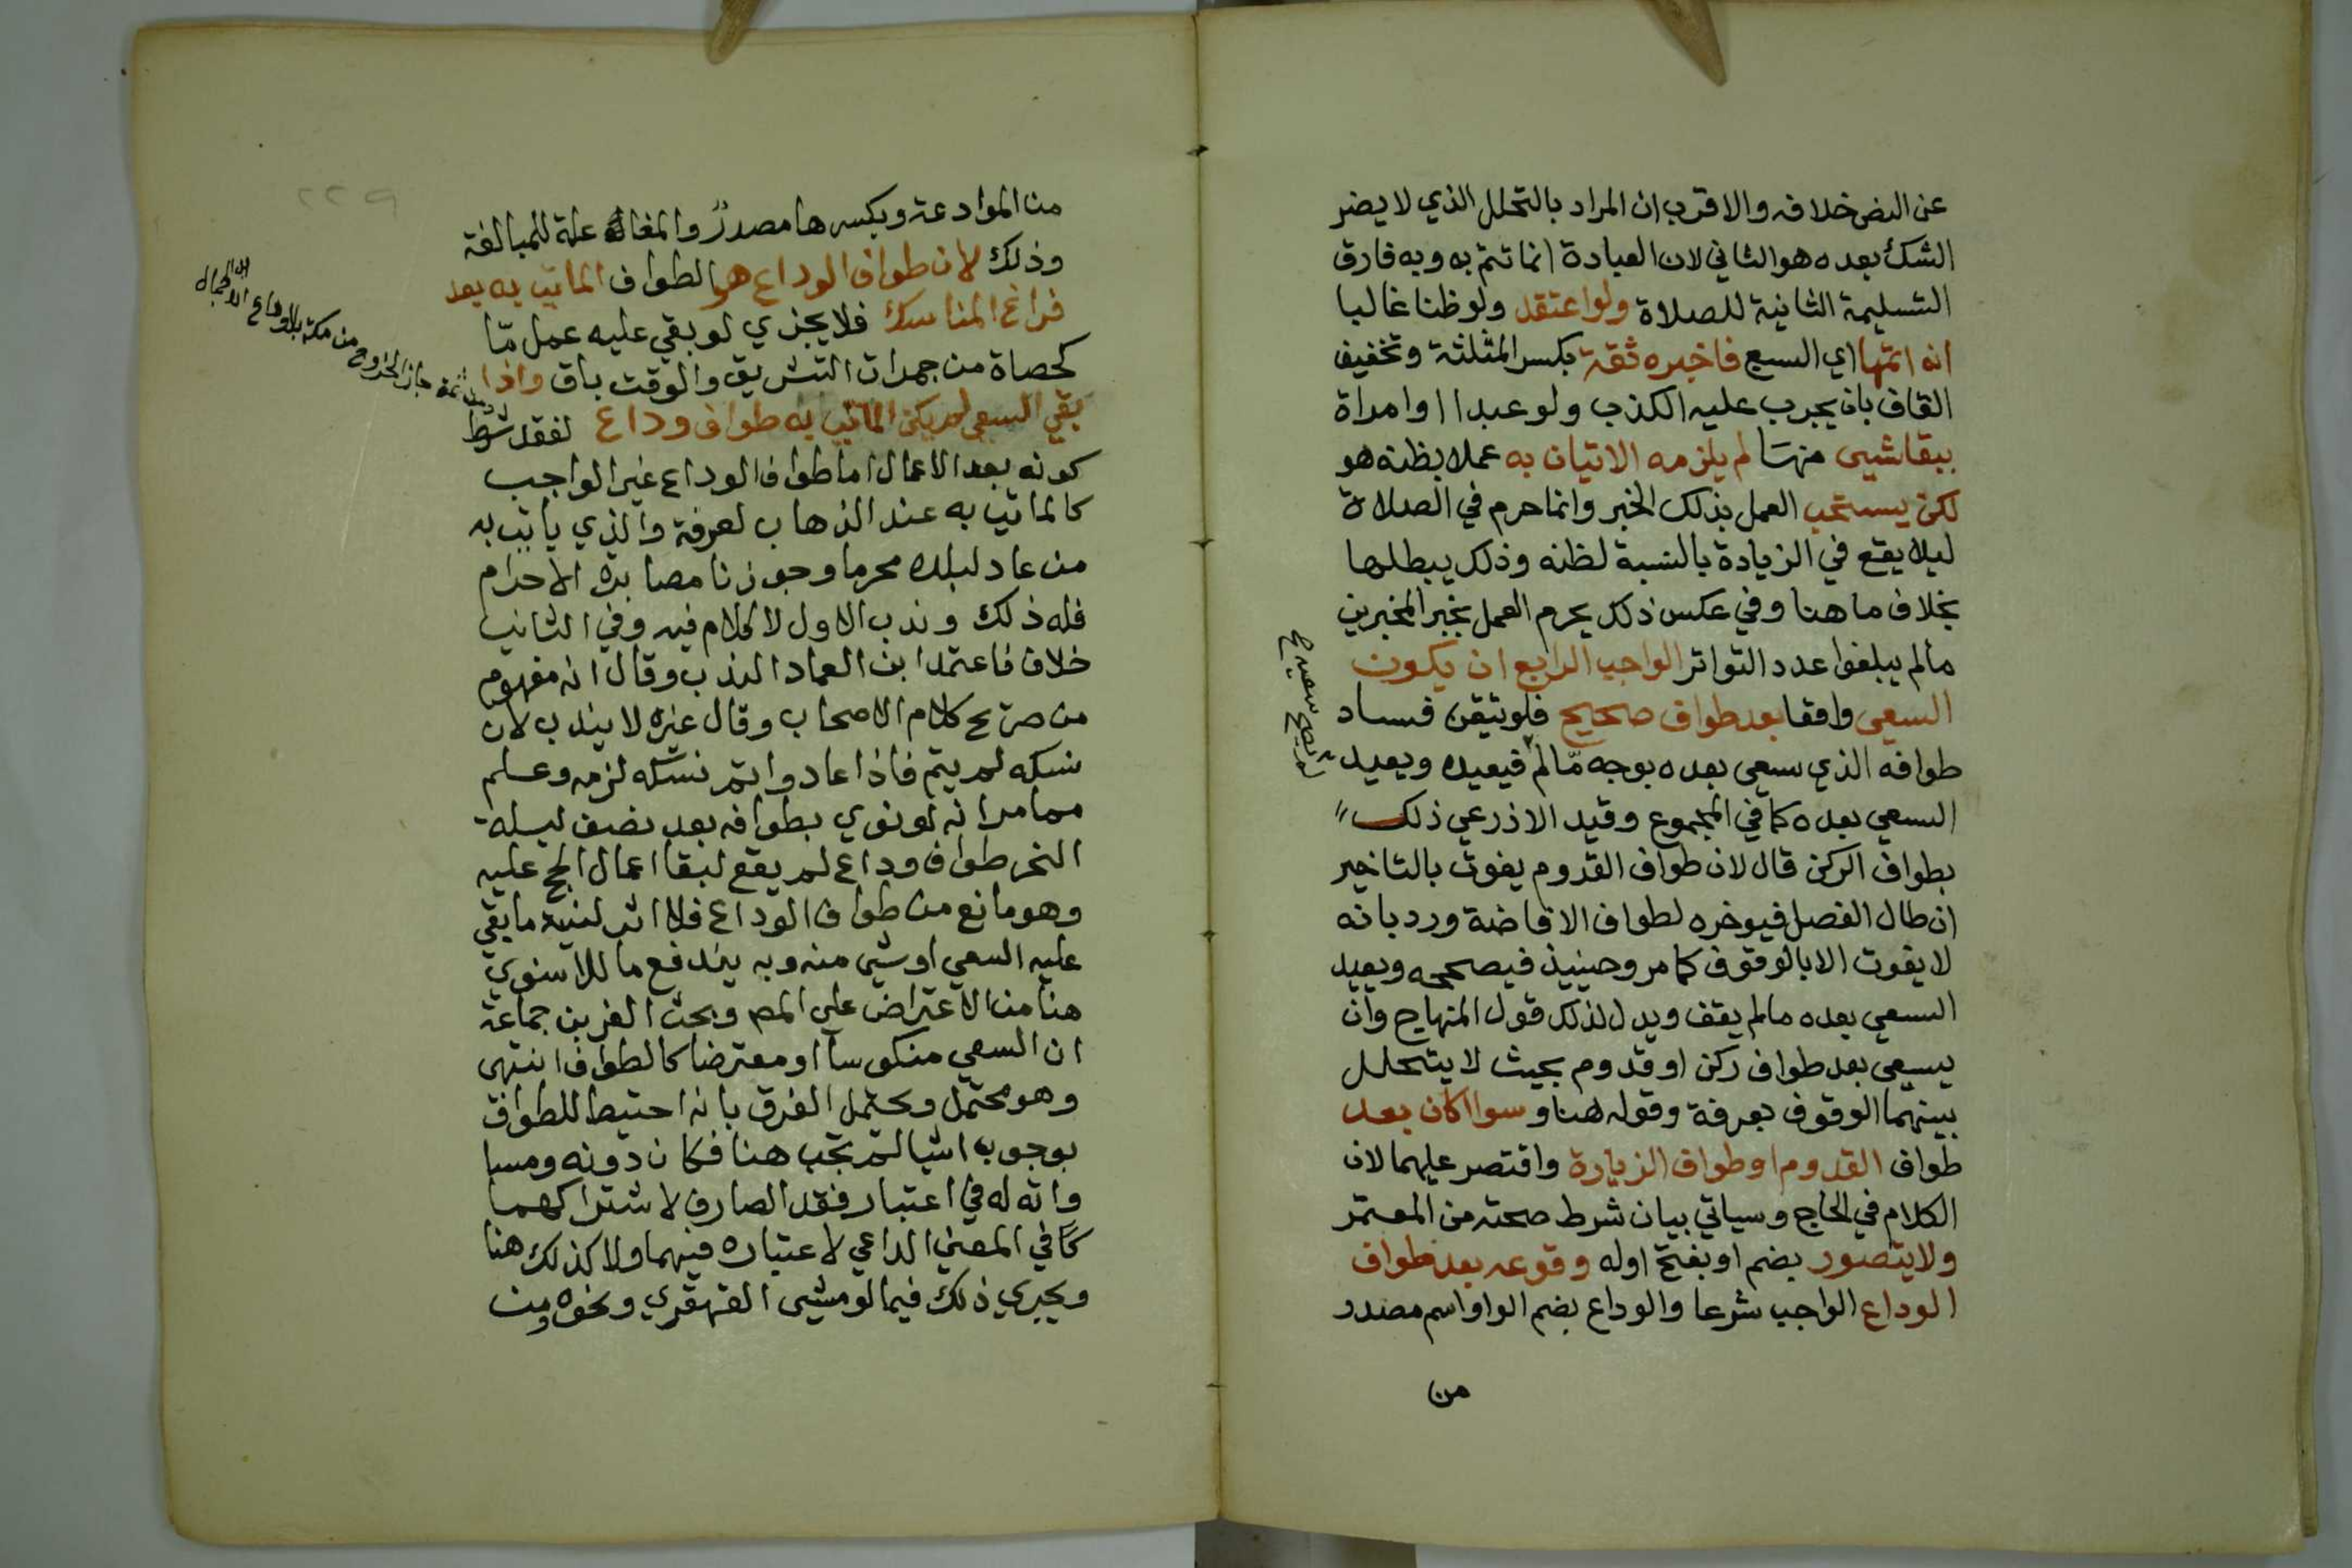 عن النص خلافه والاقرب ان المراد بالتحلل الذي لا يضر
الشك بعده هو الثاني لان العبادة انما تتم به وبه فارق
التسليمة الثانية للصلاة ولو اعتقد ولو ظنا غالبا
انه اتمها اي السبع فاخبره ثقة بكسر المثلثة وتخفيف
القاف بان يجرب عليه الكذب ولو عبدا او امراة
ببقا شيى منها لم يلزمه الاتيان به عملا بظنه هو
لكن يستحب العمل بذلك الخبر وانما حرم في الصلاة
ليلا يقع في الزيادة بالنسبة لظنه وذلك يبطلها
بخلاف ما هنا وفي عكس ذلك يحرم العمل بخبر المخبرين
مالم يبلغوا عدد التواتر الواجب الرابع ان يكون
السعي واقعا بعد طواف صحيح فلو تيقن فساد
طوافه الذي سعي بعده بوجه مّا لم فيعيده ويعيد
السعي بعده كما في المجموع وقيد الاذرعي ذلك
بطواف الركن قال لان طواف القدوم يفوت بالتاخير
ان طال الفصل فيوخره لطواف الافاضة ورد بانه
لا يفوت الا بالوقوف كما مر وحينيذ فيصححه ويعيد
السعي بعده مالم يقف ويدل لذلك قول المنهاج وان
يسعي بعد طواف ركن او قدوم بحيث لا يتحلل
بينهما الوقوف بعرفة وقوله هنا وسوا اكان بعد
طواف القدوم او طواف الزيارة واقتصر عليهما لان
الكلام في الحاج وسياتي بيان شرط صحته من المعتمر
ولا يتصور بضم او بفتح اوله وقوعه بعد طواف
الوداع الواجب شرعا والوداع بضم الواو اسم مصدر
من
٢٢٩
من الموادعة وبكسرها مصدر والمغالة علة للمبالغة
وذلك لان طواف الوداع هو الطواف الماتي به بعد
فراغ المناسك فلا يجزي لو بقي عليه عمل مّا
كحصاة من جمرات التشريق والوقت باق واذا
بقي السعي لم يكن الماتي به طواف وداع لفقد شرط
كونه بعد الاعمال اما طواف الوداع غير الواجب
كالماتي به عند الذهاب لعرفة والذي ياتي به
من عاد لبلده محرما وجوزنا مصابرة الاحرام
فله ذلك وندب الاول لا كلام فيه وفي الثاني
خلاف فاعتمد ابن العماد الندب وقال انه مفهوم
من صريح كلام الاصحاب وقال غيره لا يندب لان
نسكه لم يتم فاذا عاد واتم نسكه لزمه وعلم
مما مر انه لو نوي بطوافه بعد نصف ليلة
النحر طواف وداع لم يقع لبقا اعمال الحج عليه
وهو مانع من طواف الوداع فلا اثر لنيته ما بقي
عليه السعي او شي منه وبه يندفع ما للاسنوي
هنا من الاعتراض علي المص وبحث العز بن جماعة
ان السعي منكوسا او معترضا كالطواف انتهى
وهو محتمل ويحتمل الفرق بانه احتيط للطواف
بوجوب اشيا لم تجب هنا فكان دونه ومسا
واته له في اعتبار فقد الصارف لاشتراكهما
كما في المعني الداعي لاعتباره فيهما ولا كذلك هنا
ويجري ذلك فيما لو مشى القهقري ونحوه ومن
جاز الخروج من مكة بلا وداع